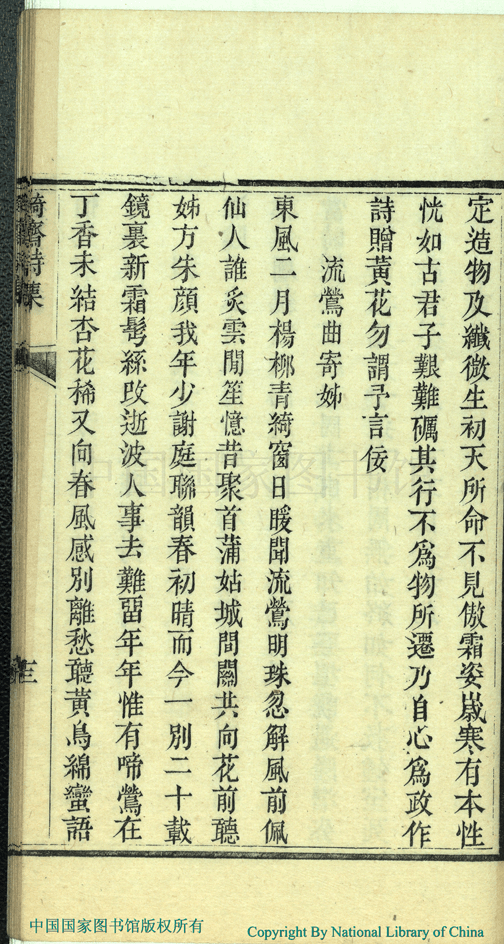 定造物及纖微生初天所命不見傲霜姿嵗寒有本性
恍如古君子艱難礪其行不爲物所遷乃自心爲政作
詩贈黃花勿謂予言佞
流鶯曲寄姊
東風二月楊柳青綺窗日暖聞流鶯明珠忽解風前佩
仙人誰炙雲閒笙憶昔聚首蒲姑城間關共向花前聽
姊方朱顔我年少謝庭聯韻春初晴而今一別二十載
鏡裏新霜鬂絲改逝波人事去難畱年年惟有啼鶯在
丁香未結杏花稀又向春風感別離愁聽黃鳥綿蠻語
詩集
三
中国国家图书馆
中国国家图书馆版权所有
Copyright By National Library of China